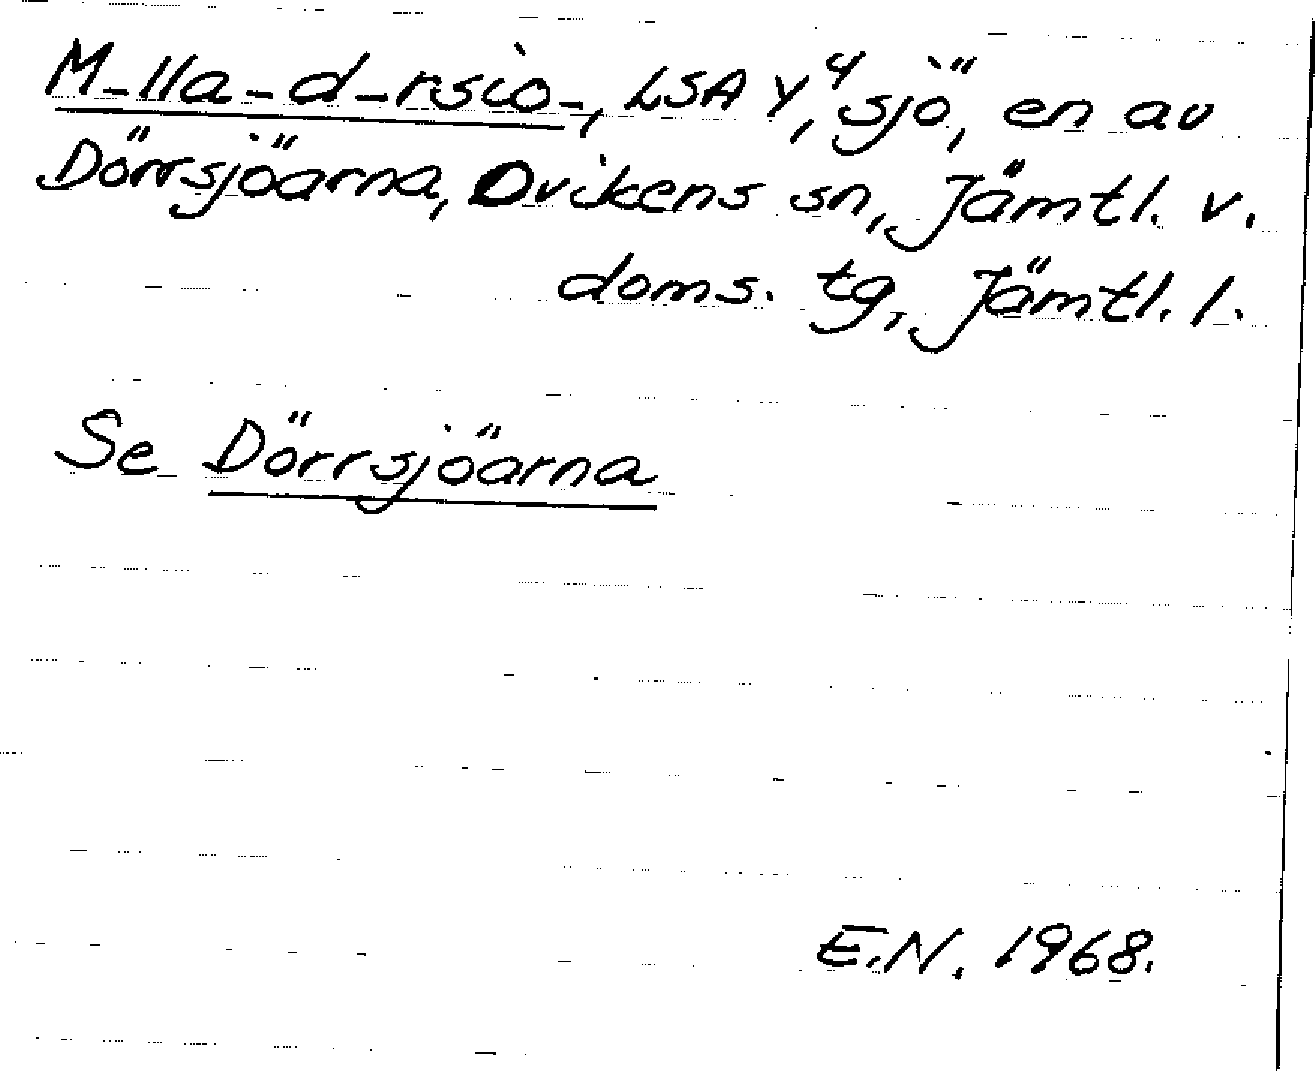 M-lla-d-rsio-, LSA Y⁴, sjö, en av
Dörrsjöarna, Ovikens sn, Jämtl. v.
doms. tg, Jämtl. l.
Se Dörrsjöarna
E.N. 1968.